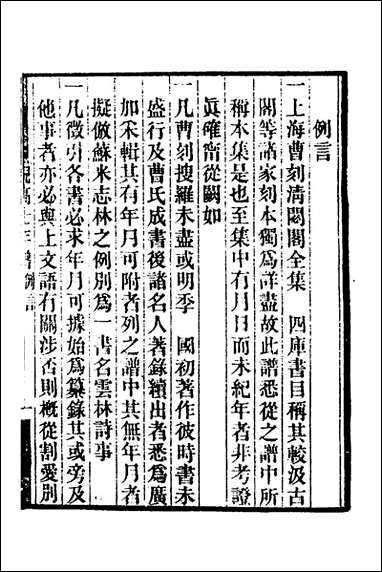 例言
一上海曹刻清閟閣全集　四庫書目稱其較汲古
閣等諸家刻本獨爲詳盡故此譜悉從之譜中所
稱本集是也至集中有月日而未紀年者非考證
眞確甯從闕如
一凡曹刻搜羅未盡或明季　國初著作彼時書未
盛行及曹氏成書後諸名人著錄續出者悉爲廣
加采輯其有年月可附者列之譜中其無年月者
擬倣蘇米志林之例別爲一書名雲林詩事
一凡徵引各書必求年月可據始爲纂錄其或旁及
他事者亦必與上文語有關涉否則概從割愛別
高士年譜例言